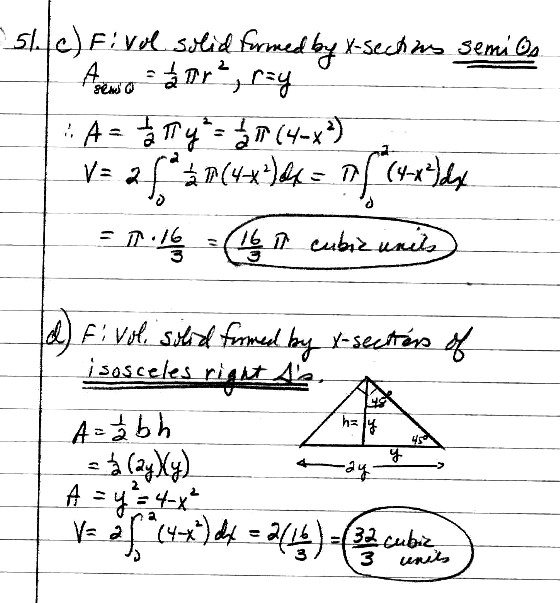 51. c) F: Vol solid formed by x-sections semi ⊙s
A semi ⊙ = 1/2 πr², r=y
∴ A = 1/2 πy² = 1/2 π(4-x²)
V = 2∫₀² 1/2 π(4-x²)dx = π∫₀² (4-x²)dx
= π · 16/3 = 16/3 π cubic units
d) F: Vol. solid formed by x-sections of
isosceles right Δ's.
45°
h= y
45°
y
2y
A = 1/2 bh
= 1/2 (2y)(y)
A = y² = 4-x²
V = 2∫₀² (4-x²)dx = 2(16/3) = 32/3 cubic units